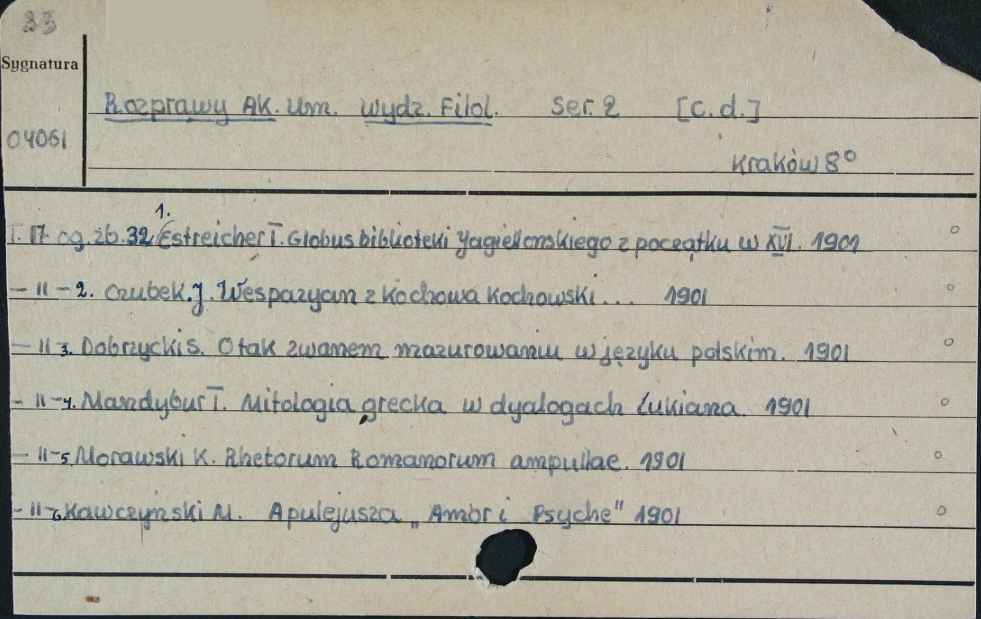 33
Sygnatura
04061
Rozprawy AK. Um. wydz. Filol. Ser. 2 [c.d.]
Kraków 8°
T. 17 og. zb. 32. 1. Estreicher T. Globus biblioteki Jagiellonskiego z początku w XVI. 1901
– 11 – 2. Czubek. J. Wespazyan z Kochowa Kochowski... 1901
– 11 3. Dobrzycki S. O tak zwanem mazurowaniu w języku polskim. 1901
– 11 – 4. Mandybur T. Mitologia grecka w dyalogach Lukiana. 1901
– 11 – 5. Morawski K. Rhetorum Romanorum ampullae. 1901
– 11 6 Kawczyński M. Apulejusza „Ambr i Psyche" 1901